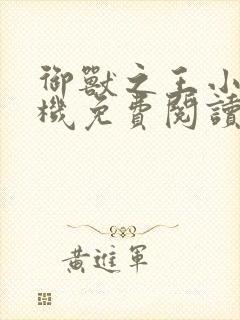 御獸之王小
機免費閱讀
黃進軍